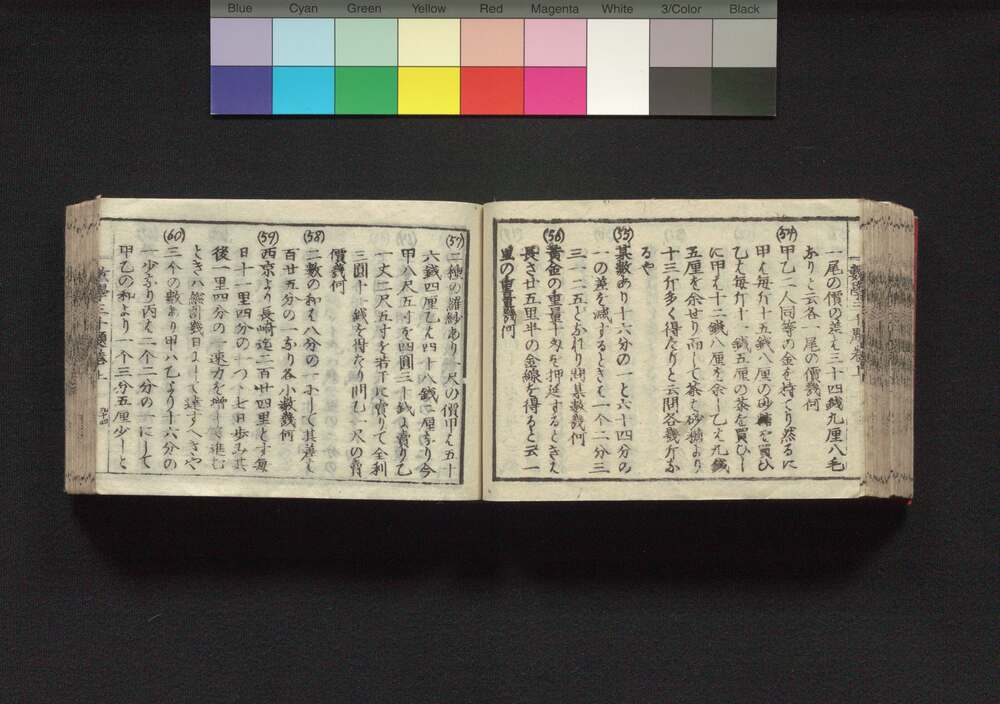 Blue Cyan Green Yellow Red Magenta White 3/Color Black
一尾の價の差ハ三十四錢九厘八毛
ありと云各一尾の價幾何
(54)
甲乙二人同等の金を持たり然るに
甲ハ毎斤十五錢八厘の砂糖を買ひ
乙ハ毎斤十一錢五厘の茶を買ひし
に甲ハ十二錢八厘を余し乙ハ九錢
五厘を余せり而して茶ハ砂糖より
十三斤多く得たりと云問各幾斤な
るや
(55)
某數あり十六分の一と六十四分の
一の差を減するときハ一个二分三
三一二五となれり問某數幾何
(56)
黄金の重量十匁を押延するときハ
長さ廿五里半の金線を得ると云一
里の重量幾何
(57)
二種の羅紗あり一尺の價甲ハ五十
六錢四厘乙ハ四十八錢二厘なり今
甲八尺五寸を四圓三十錢に賣り乙
一丈二尺五寸を若干に賣りて全利
三圓十一錢を得たり問乙一尺の賣
價幾何
(58)
二數の和ハ八分の一にして其差ハ
百廿五分の一なり各小數幾何
(59)
西京より長崎迄二百廿四里とす毎
日十一里四分の一つゝ七日歩み其
後一里四分の一速力を増して進む
ときハ總計幾日にして達すへきや
(60)
三个の數あり甲ハ乙より十六分の
一少なり丙ハ二个二分の一にして
甲乙の和より一个三分五厘少しと
數學三千題卷上